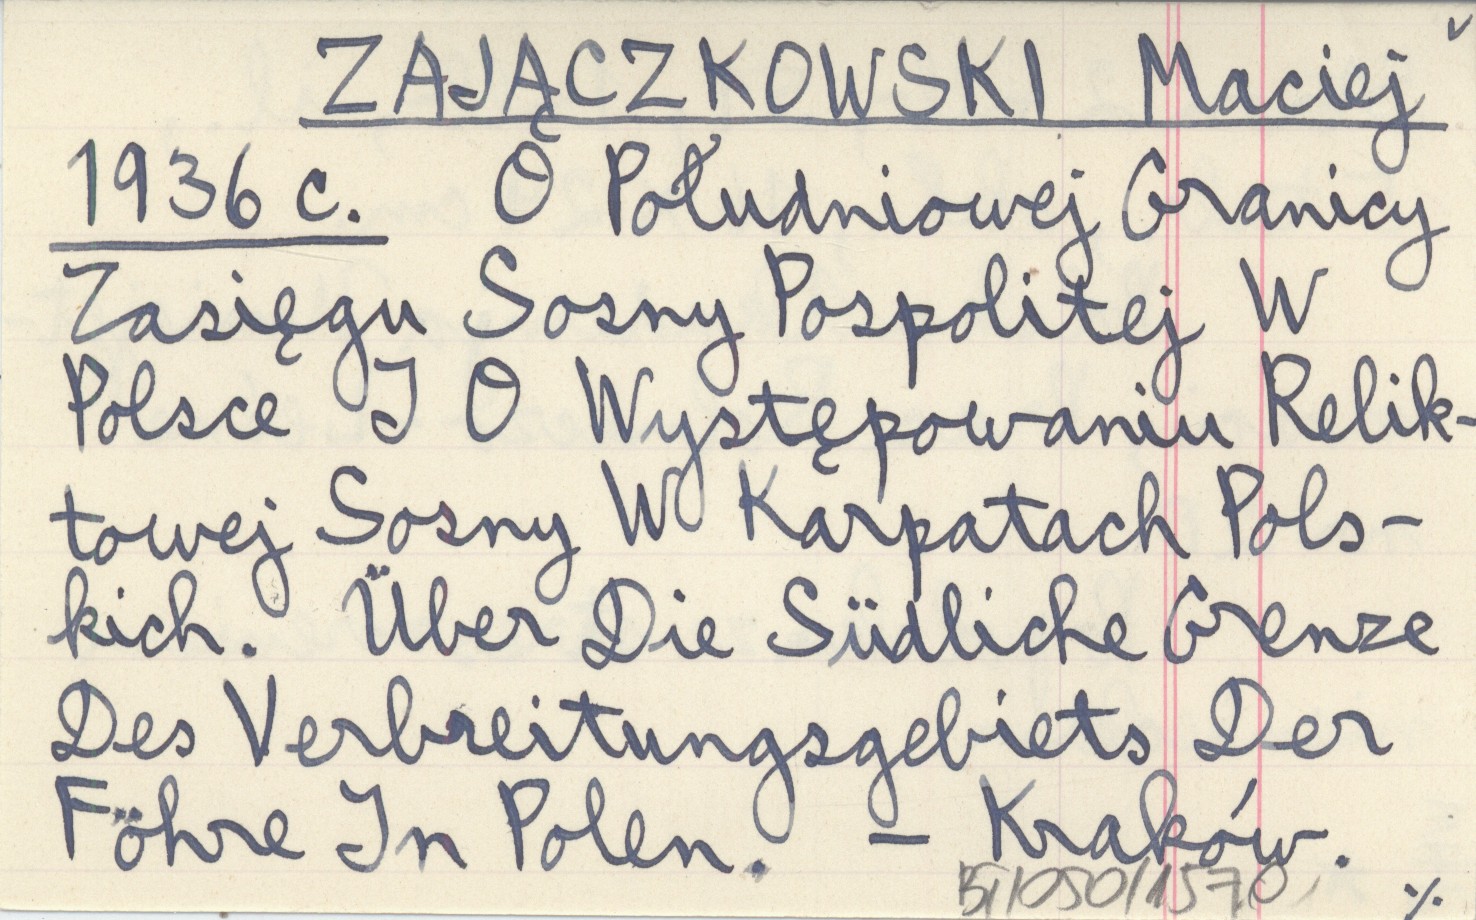 ZAJĄCZKOWSKI Maciej
1936 c. O Południowej Granicy
Zasięgu Sosny Pospolitej W
Polsce I O Występowaniu Relik-
towej Sosny W Karpatach Pols-
kich. Über Die Südliche Grenze
Des Verbreitungsgebiets Der
Föhre In Polen. – Kraków.
/050/1570
./.